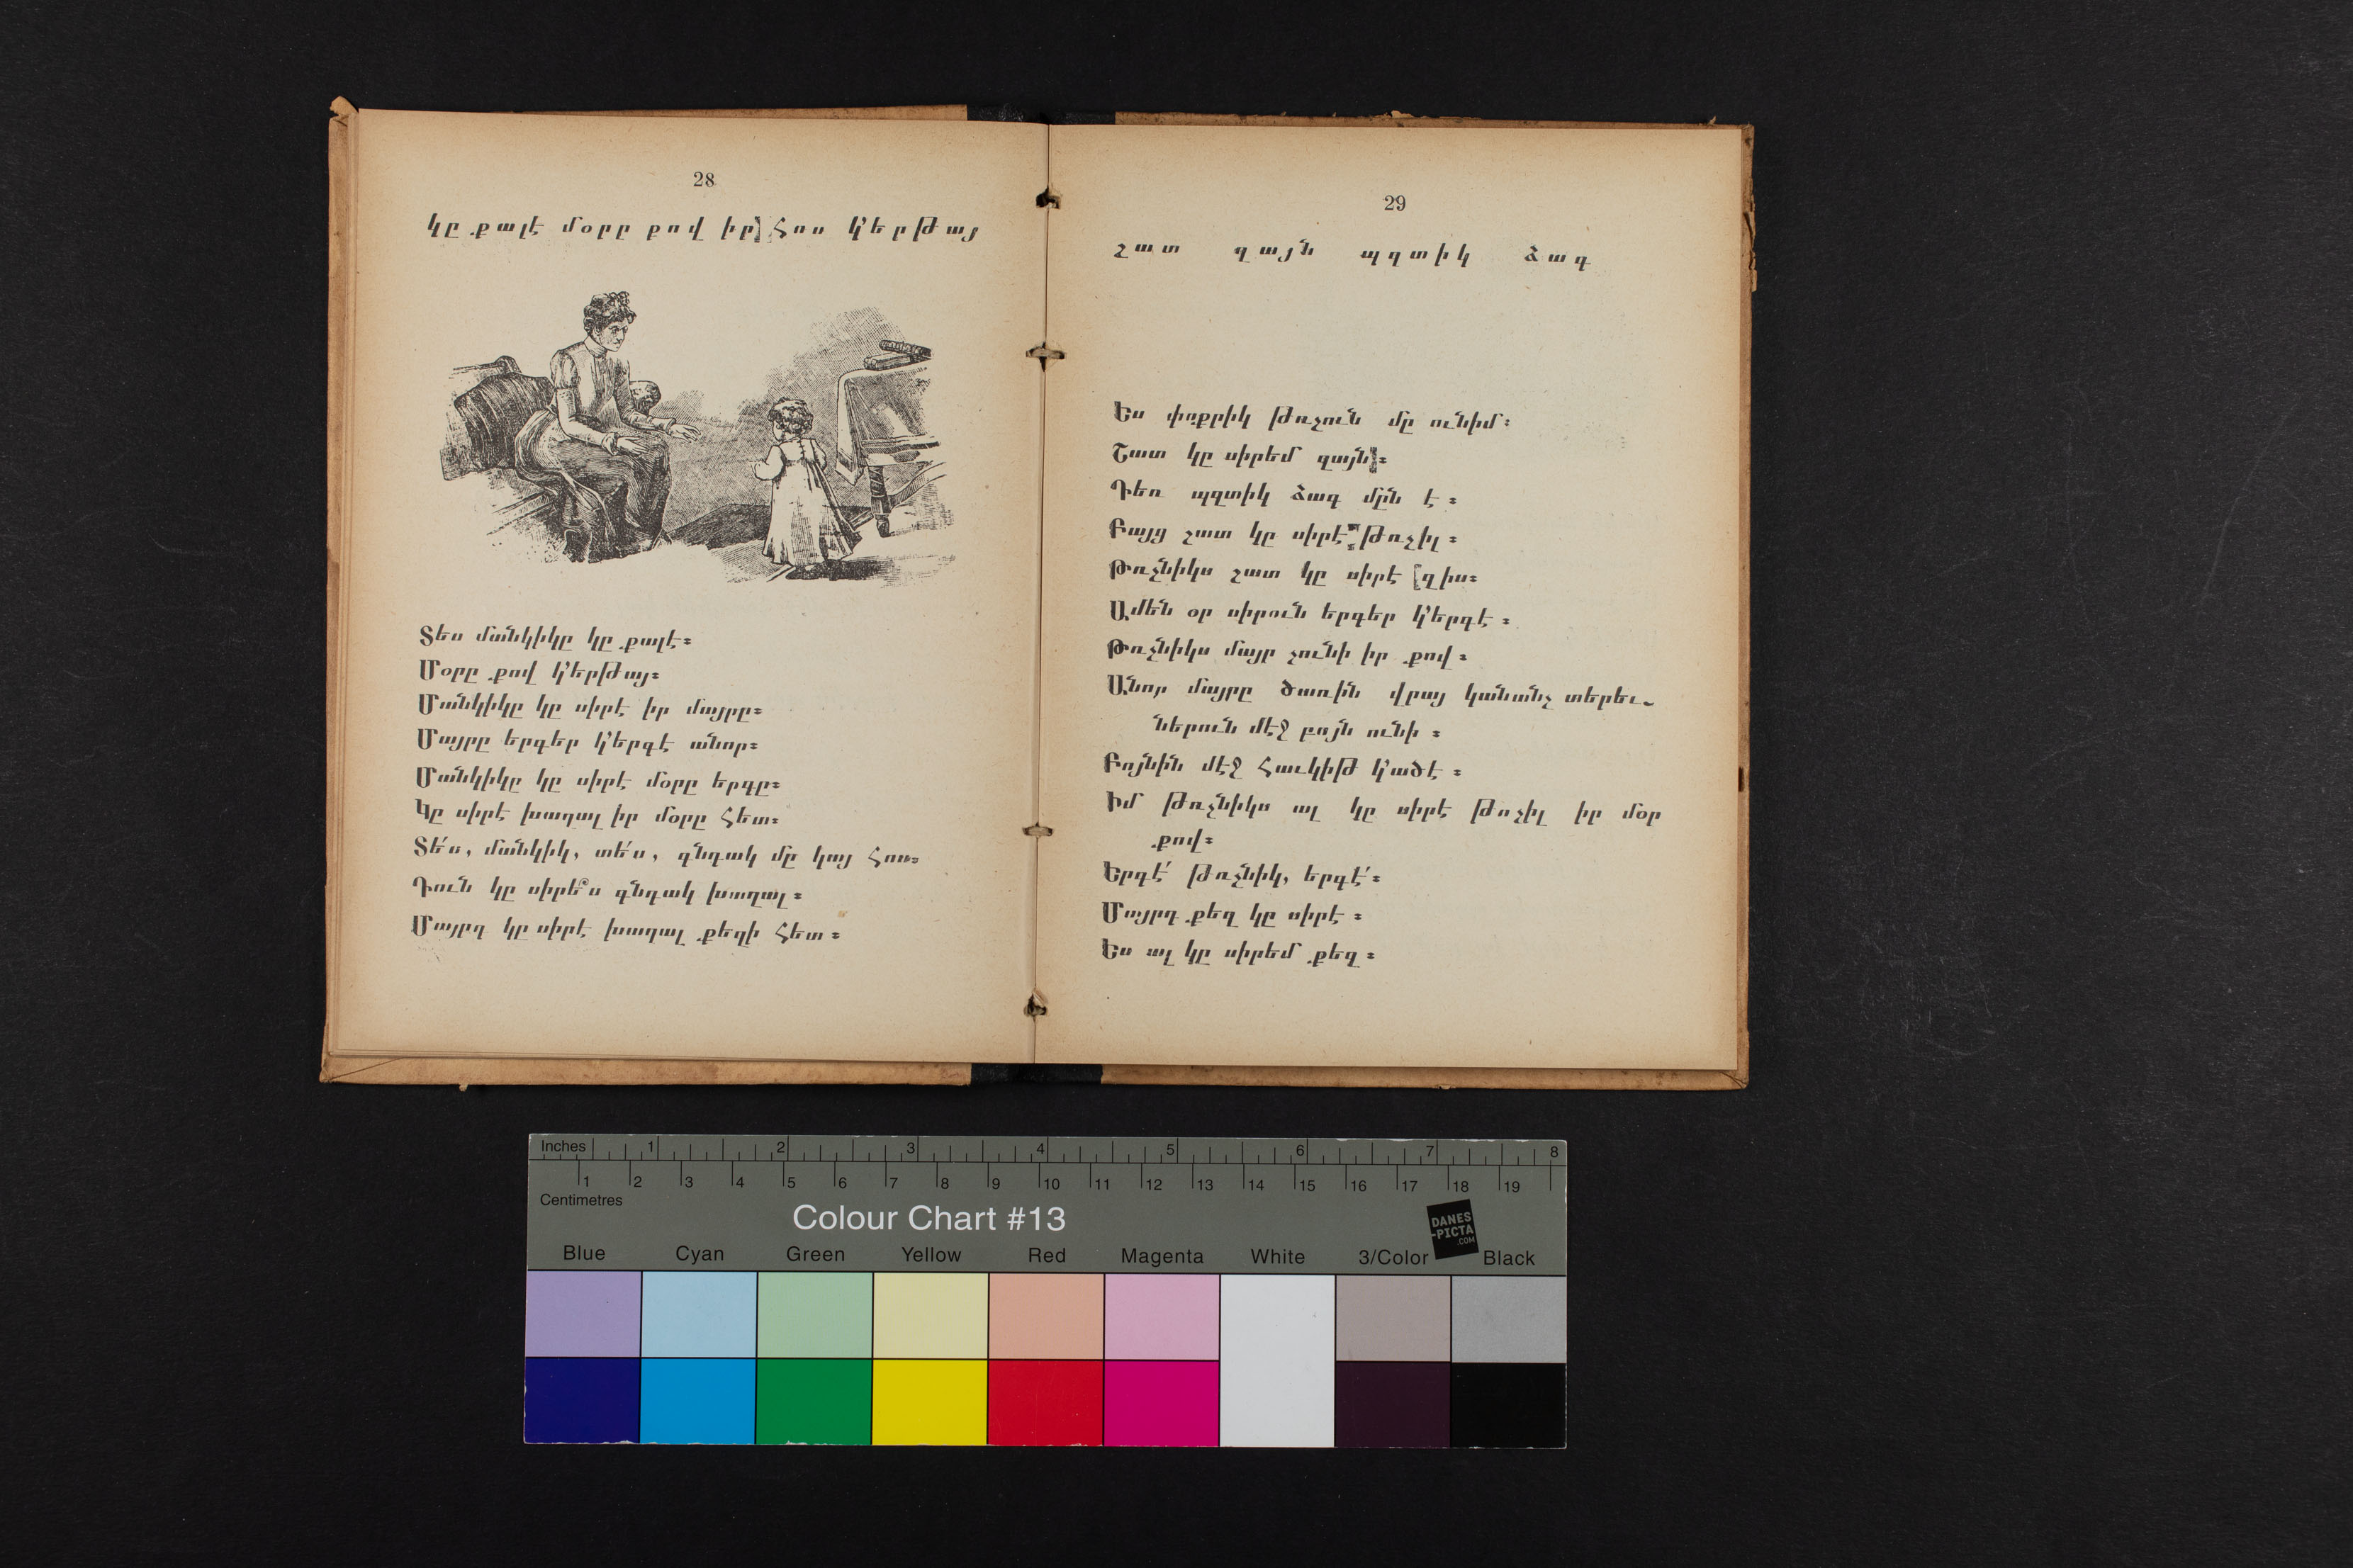 28
կը քալէ մօրը քով իր հոս կ՚երթայ
Տես մանկիկը կը քալէ։
Մօրը քով կ՚երթայ։
Մանկիկը կը սիրէ իր մայրը։
Մայրը երգեր կ՚երգէ անոր։
Մանկիկը կը սիրէ մօրը երգը։
Կը սիրէ խաղալ իր մօրը հետ։
Տե՛ս, մանկիկ, տե՛ս, գնդակ մը կայ հոս։
Դուն կը սիրե՞ս գնդակ խաղալ։
Մայրդ կը սիրէ խաղալ քեզի հետ։
29
շատ զայն պզտիկ ձագ
Ես փոքրիկ թռչուն մը ունիմ։
Շատ կը սիրեմ զայն։
Դեռ պզտիկ ձագ մըն է։
Բայց շատ կը սիրէ թռչիլ։
Թռչնիկս շատ կը սիրէ զիս։
Ամեն օր սիրուն երգեր կ՚երգէ։
Թռչնիկս մայր չունի իր քով։
Անոր մայրը ծառին վրայ կանանչ տերեւ-
ներուն մէջ բոյն ունի։
Բոյնին մէջ հաւկիթ կ՚ածէ։
Իմ թռչնիկս ալ կը սիրէ թռչիլ իր մօր
քով։
Երգէ՛ թռչնիկ, երգէ՛։
Մայրդ քեզ կը սիրէ։
Ես ալ կը սիրեմ քեզ։
Inches 1 2 3 4 5 6 7 8
1 2 3 4 5 6 7 8 9 10 11 12 13 14 15 16 17 18 19
Centimetres
Colour Chart #13
DANES
-PICTA
.COM
Blue Cyan Green Yellow Red Magenta White 3/Color Black